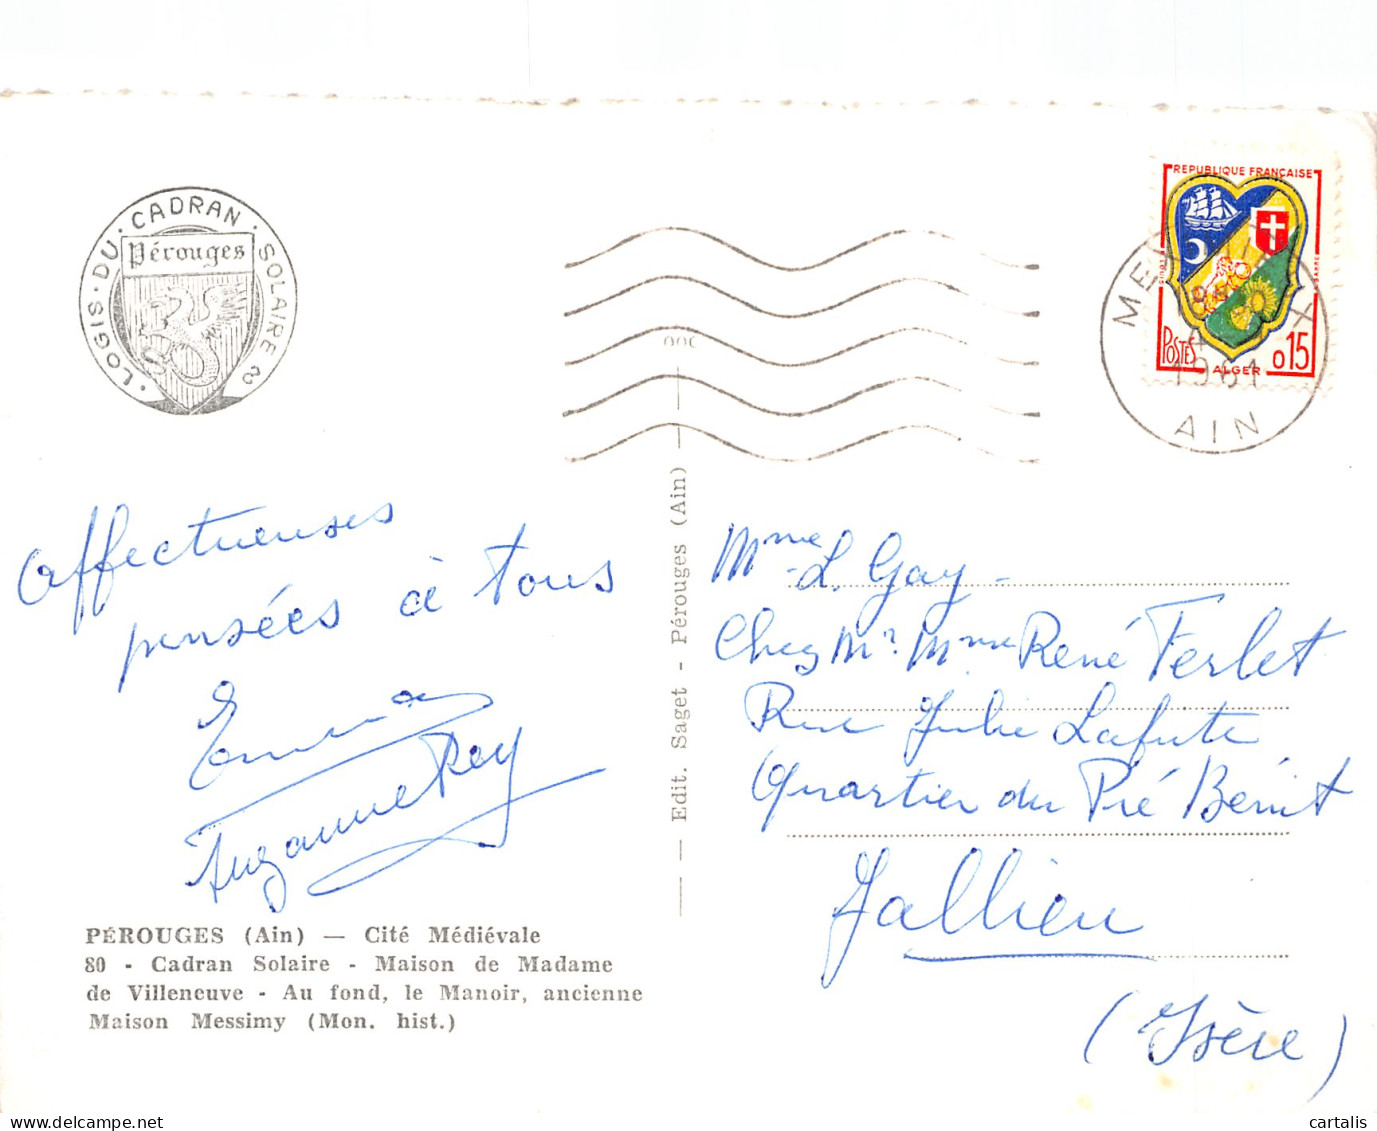 · LOGIS · DU · CADRAN · SOLAIRE
Pérouges
REPUBLIQUE FRANÇAISE
POSTES
ALGER
0,15
1961
AIN
Affectueuses
pensées à tous
Suzanne Rey
PÉROUGES (Ain) — Cité Médiévale
80 - Cadran Solaire - Maison de Madame
de Villeneuve - Au fond, le Manoir, ancienne
Maison Messimy (Mon. hist.)
Edit. Saget - Pérouges (Ain)
Mme L. Gay -
Chez Mr. Mme René Ferlet
Rue Julie Lafute
Quartier du Pré Bénit
Jallieu
(Isère)
cartalis